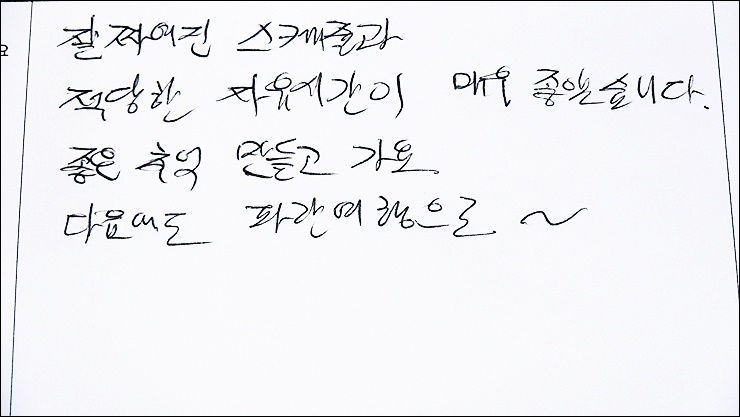 잘 짜여진 스케줄과
적당한 자유시간이 매우 좋았습니다.
좋은 추억 만들고 가요.
다음에도 파란여행으로 ~